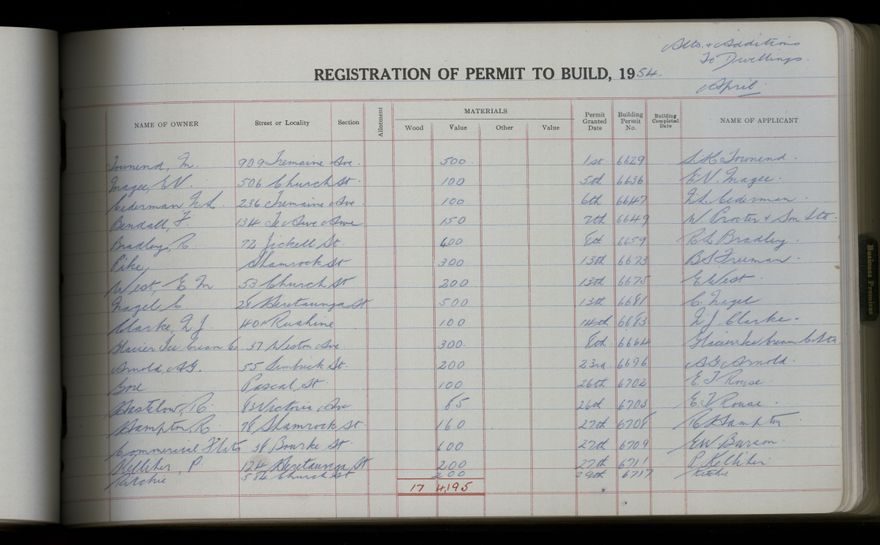 Alts. & Additions
To Dwellings.
REGISTRATION OF PERMIT TO BUILD, 1954.
April.
NAME OF OWNER Street or Locality Section Allotment MATERIALS Wood Value Other Value Permit Granted Date Building Permit No. Building Completed Date NAME OF APPLICANT
Townend, M. 909 Tremaine Ave. 500 1st 6629 Townend.
Magee, E V. 506 Church St. 100 5th 6636 E V Magee.
Cederman 236 Tremaine Ave 100 6th 6647 Cederman
Bendall, F. 134 Te Awe Awe 150 7th 6649 W. Procter & Son Ltd.
Bradley, R. 72 Jickell St. 400 8th 6659 Bradley.
Pike, Shamrock St 300 13th 6673 Freeman.
West, E M 53 Church St 200 13th 6675 E West.
Nagel C 28 Beretaunga St 500 13th 6681 C. Nagel
Clarke, J. 40 Rushine 100 14th 6683 J Clarke.
Glacier Ice Cream Co 37 Weston Ave 300. 8th 6664 Glacier Ice Cream Co Ltd
Arnold, A G. 55 St. 200 23rd 6696 A G Arnold.
Gore Pascal St. 100 26th 6702 Rouse.
R. Victoria Ave 85 26th 6703 Rouse.
Hampton, R. 98 Shamrock St 160 27th 6708 R Hampton
Commercial Flats 38 Bourke St 600 27th 6709 E W
Kelliher, P. 124 Beretaunga St 200 27th 6711 P Kelliher
Ritchie 584 Church St 200 29th 6717 Ritchie
17 4195
Business Premises